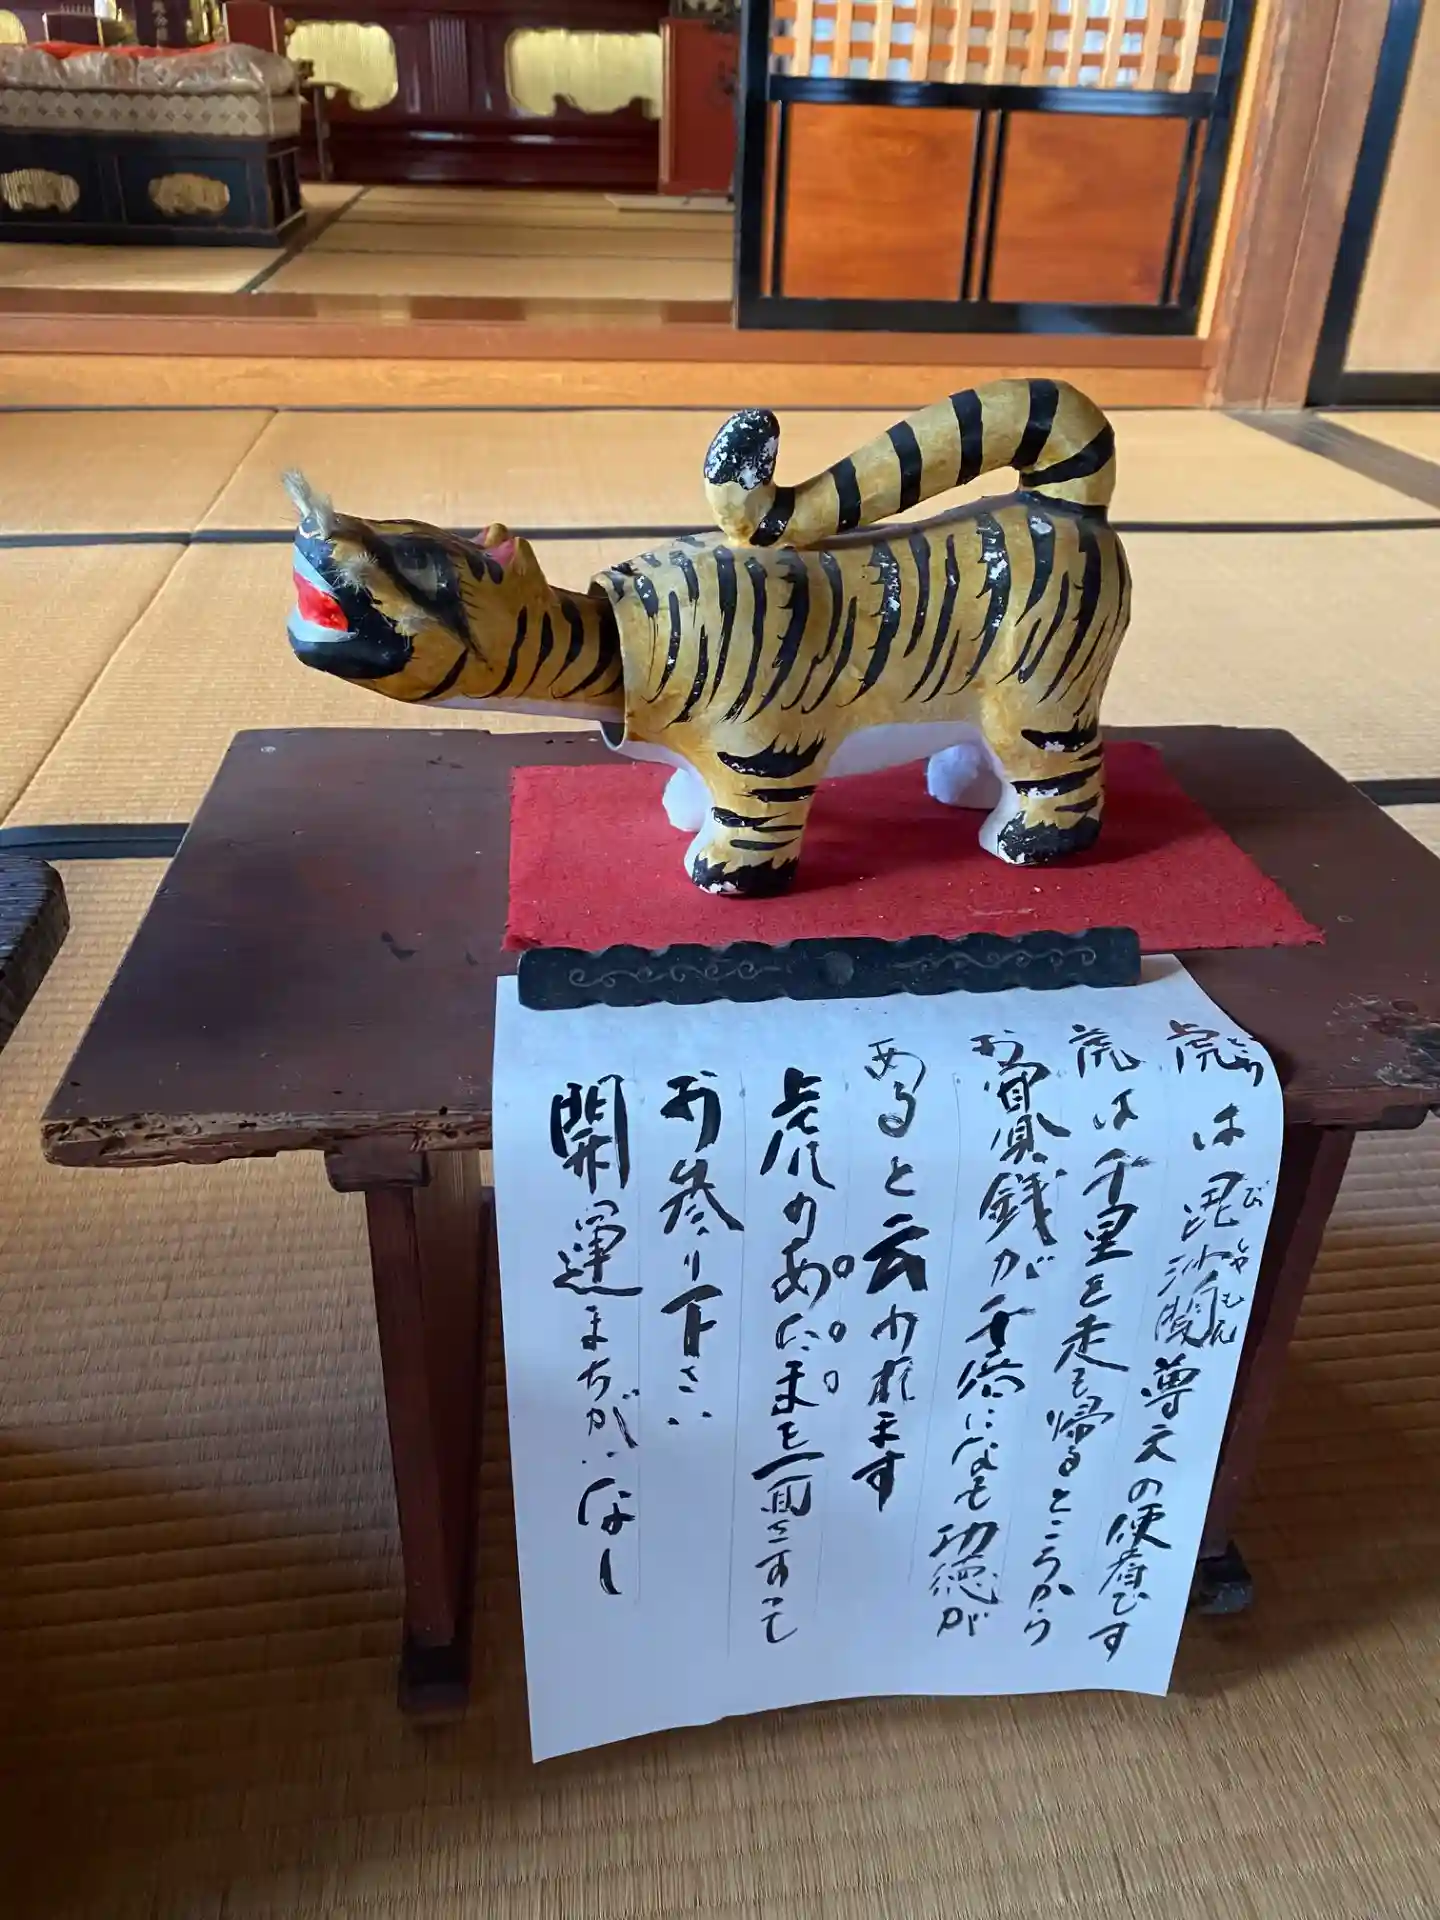 虎は毘沙門尊天の使者です
とら
びしゃもん
虎は千里を走も帰るところから
お賽銭が千倍になも功徳が
あると云われます
虎のあたまを一回さすって
お参り下さい
開運まちがいなし